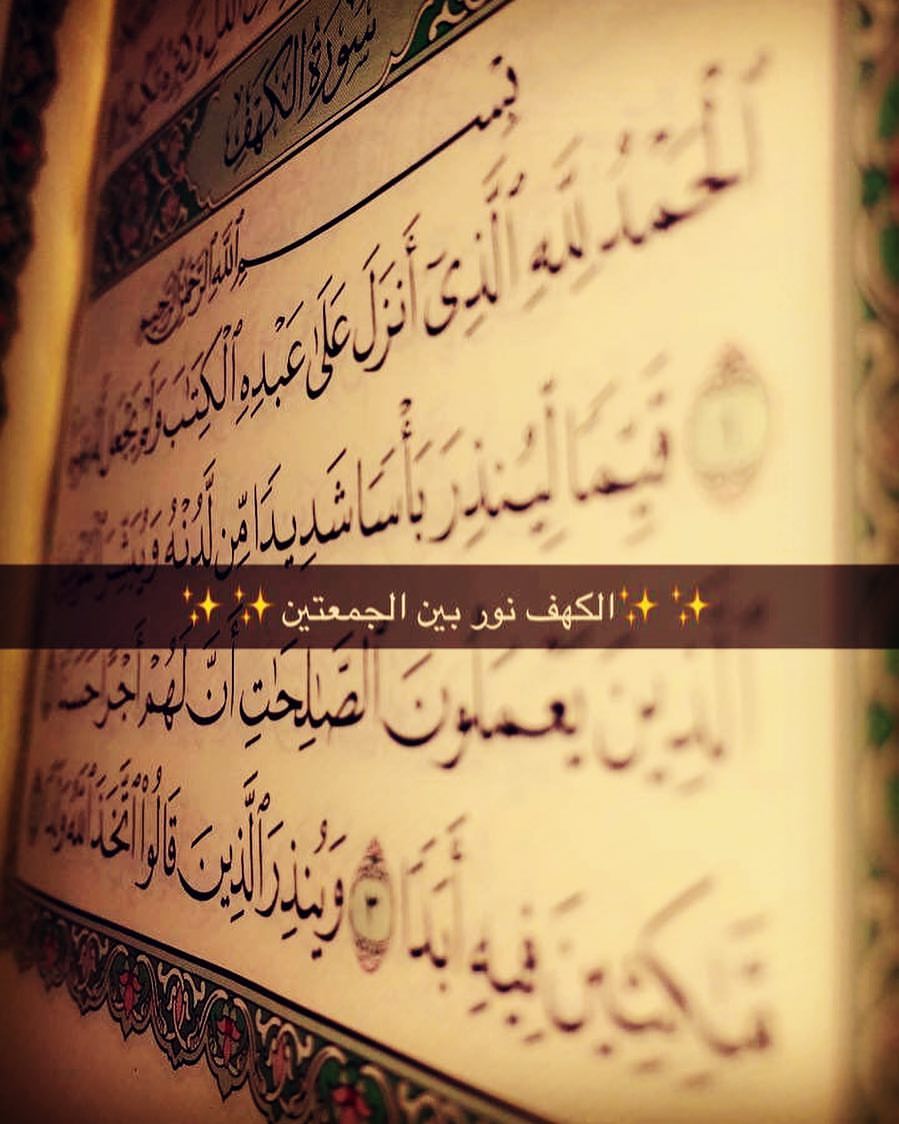 سُورَةُ الكَهْفِ
بِسْمِ اللَّهِ الرَّحْمَٰنِ الرَّحِيمِ
ٱلْحَمْدُ لِلَّهِ ٱلَّذِىٓ أَنزَلَ عَلَىٰ عَبْدِهِ ٱلْكِتَٰبَ وَلَمْ يَجْعَل
١ قَيِّمًا لِّيُنذِرَ بَأْسًا شَدِيدًا مِّن لَّدُنْهُ وَيُبَشِّرَ
✨✨الكهف نور بين الجمعتين✨✨
ٱلَّذِينَ يَعْمَلُونَ ٱلصَّٰلِحَٰتِ أَنَّ لَهُمْ أَجْرًا حَسَنًا
مَّٰكِثِينَ فِيهِ أَبَدًا ٣ وَيُنذِرَ ٱلَّذِينَ قَالُوا۟ ٱتَّخَذَ ٱللَّهُ